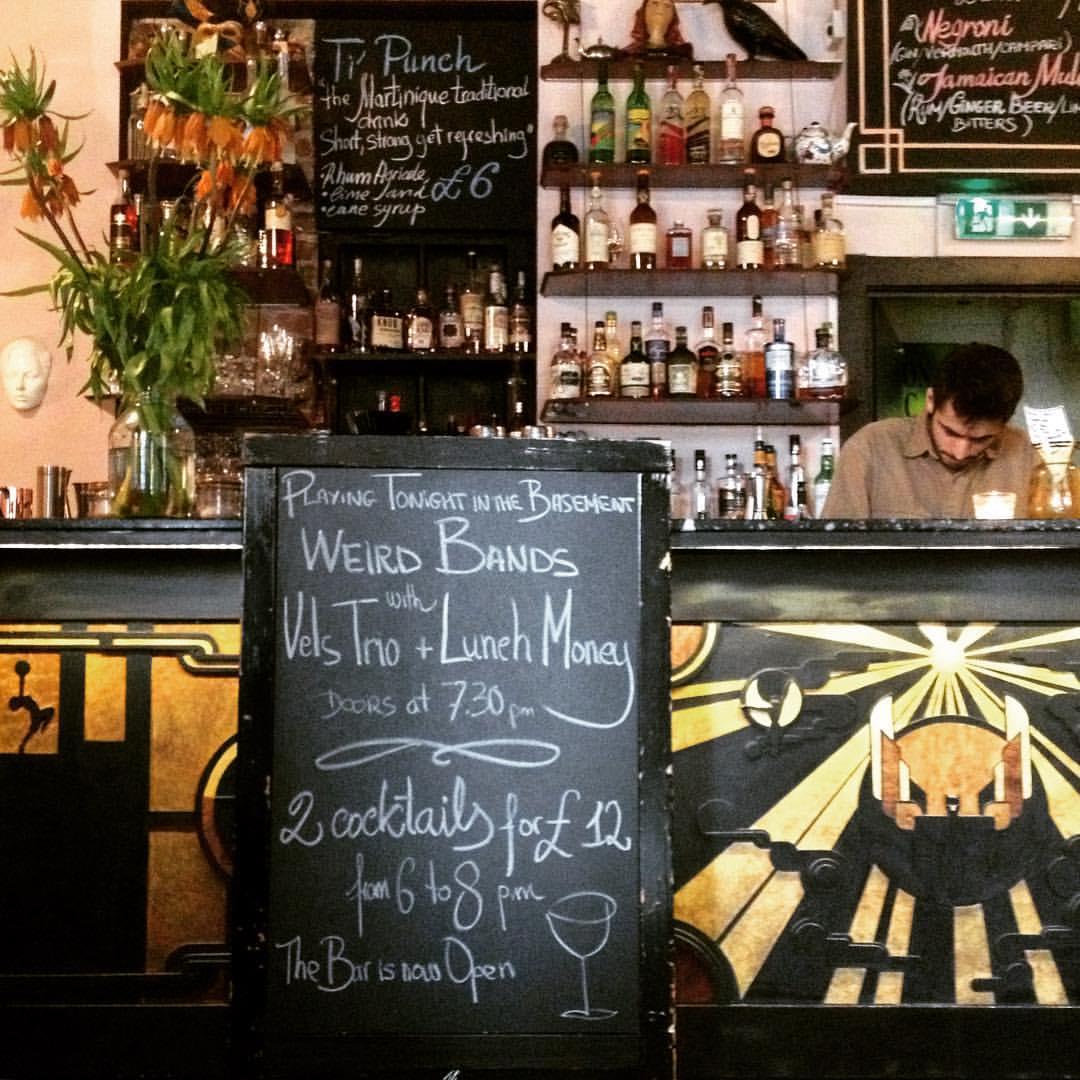 Ti' Punch
"the Martinique traditional
drink
Short, strong, yet refreshing"
Rhum Agricole
•lime and
•cane syrup
£6
Negroni
(Gin/Vermouth/Campari)
Jamaican Mul
(Rum/Ginger Beer/Lim
Bitters)
Playing Tonight in the Basement
Weird Bands
with
Vels Trio + Lunch Money
Doors at 7.30 pm
2 cocktails for £12
from 6 to 8 p.m
The Bar is now Open